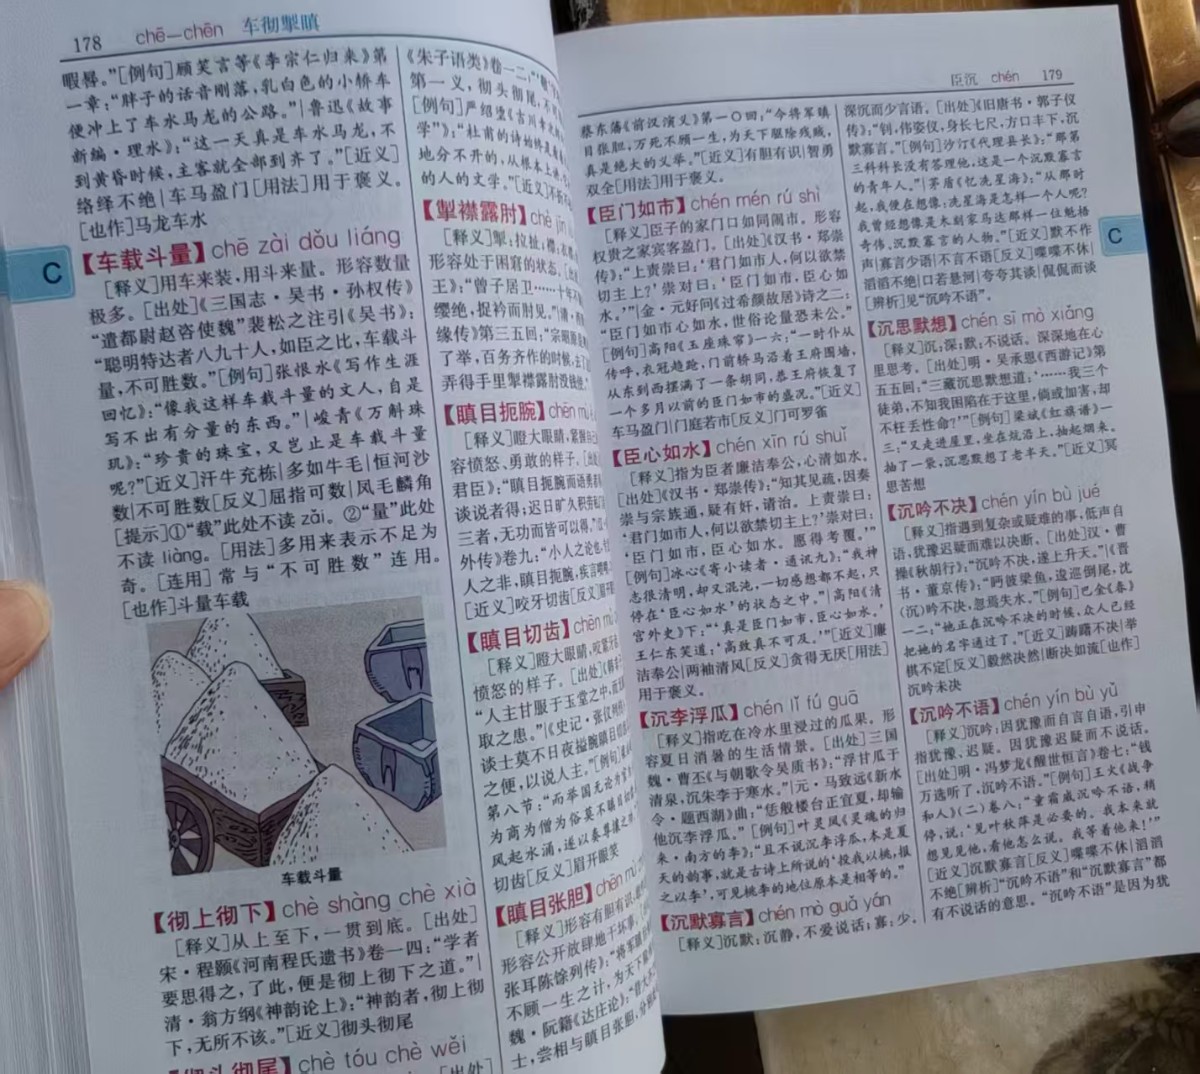 178 chē—chēn 车彻掣瞋
暇晷。”[例句]顾笑言等《李宗仁归来》第
一章:“胖子的话音刚落,乳白色的小轿车
便冲上了车水马龙的公路。”|鲁迅《故事
新编·理水》:“这一天真是车水马龙,不
到黄昏时候,主客就全部到齐了。”[近义]
络绎不绝|车马盈门[用法]用于褒义。
[也作]马龙车水
【车载斗量】chē zài dǒu liáng
[释义]用车来装,用斗来量。形容数量
极多。[出处]《三国志·吴书·孙权传》
“遣都尉赵咨使魏”裴松之注引《吴书》:
“聪明特达者八九十人,如臣之比,车载斗
量,不可胜数。”[例句]张恨水《写作生涯
回忆》:“像我这样车载斗量的文人,自是
写不出有分量的东西。”|峻青《万斛珠
玑》:“珍贵的珠宝,又岂止是车载斗量
呢?”[近义]汗牛充栋|多如牛毛|恒河沙
数|不可胜数[反义]屈指可数|凤毛麟角
[提示]①“载”此处不读zǎi。②“量”此处
不读liàng。[用法]多用来表示不足为
奇。[连用]常与“不可胜数”连用。
[也作]斗量车载
车载斗量
【彻上彻下】chè shàng chè xià
[释义]从上至下,一贯到底。[出处]
宋·程颢《河南程氏遗书》卷一四:“学者
要思得之,了此,便是彻上彻下之道。”|
清·翁方纲《神韵论上》:“神韵者,彻上彻
下,无所不该。”[近义]彻头彻尾
【彻头彻尾】chè tóu chè wěi
[出处]
《朱子语类》卷一二:“
第一义,彻头彻尾,不可
[例句]严绍璗《
学》”:“杜甫的诗始终是
地分不开的,从根本上
的人的文学。”[近义]
【掣襟露肘】chè jīn
[释义]掣:拉扯;襟:
形容处于困窘的状态。
王》:“曾子居卫……十年不
缨绝,捉衿而肘见。”
缘传》第三五回:“宗师
了举,百务齐作的时候,去了
弄得手里掣襟露肘没钱使。
【瞋目扼腕】chēn
[释义]瞪大眼睛,紧握
容愤怒、勇敢的样子。
君臣》:“瞋目扼腕而语
谈说者得;迟日旷久积
三者,无功而皆可以得。”
外传》卷九:“小人之论也,
人之非,瞋目扼腕,疾言
[近义]咬牙切齿[反义]
【瞋目切齿】chēn
[释义]瞪大眼睛,咬紧牙
愤怒的样子。[出处]
“人主甘服于玉堂之中,而
取之患。”|《史记·张仪
谈士莫不日夜搤腕瞋目切
之便,以说人主。”[例句]
第八节:“而举国无论
为商为僧为俗莫不瞋目
风起水涌,遂以奏尊攘之
切齿[反义]眉开眼笑
【瞋目张胆】chēn
[释义]形容有胆有识,
形容公开放肆地干坏事。
张耳陈馀列传》:“将军瞋
不顾一生之计,为天下
魏·阮籍《达庄论》:“
士,尝相与瞋目张胆,
臣沉 chén 179
蔡东藩《前汉演义》第一〇回:“今将军瞋
目张胆,万死不顾一生,为天下驱除残贼,
真是绝大的义举。”[近义]有胆有识|智勇
双全[用法]用于褒义。
【臣门如市】chén mén rú shì
[释义]臣子的家门口如同闹市。形容
权贵之家宾客盈门。[出处]《汉书·郑崇
传》:“上责崇曰:‘君门如市人,何以欲禁
切主上?’崇对曰:‘臣门如市,臣心如
水。’”|金·元好问《过希颜故居》诗之二:
“臣门如市心如水,世俗论量恐未公。”
[例句]高阳《玉座珠帘》一六:“一时仆从
传呼,衣冠趋跄,门前轿马沿着王府围墙,
从东到西摆满了一条胡同,恭王府恢复了
一个多月以前的臣门如市的盛况。”[近义]
车马盈门|门庭若市[反义]门可罗雀
【臣心如水】chén xīn rú shuǐ
[释义]指为臣者廉洁奉公,心清如水。
[出处]《汉书·郑崇传》:“知其见疏,因奏
崇与宗族通,疑有奸,请治。上责崇曰:
‘君门如市人,何以欲禁切主上?’崇对曰:
‘臣门如市,臣心如水。愿得考覆。’”
[例句]冰心《寄小读者·通讯九》:“我神
志很清明,却又混沌,一切感想都不起,只
停在‘臣心如水’的状态之中。”|高阳《清
宫外史》下:“‘真是臣门如市,臣心如水。’
王仁东笑道:‘高致真不可及。’”[近义]廉
洁奉公|两袖清风[反义]贪得无厌[用法]
用于褒义。
【沉李浮瓜】chén lǐ fú guā
[释义]指吃在冷水里浸过的瓜果。形
容夏日消暑的生活情景。[出处]三国
魏·曹丕《与朝歌令吴质书》:“浮甘瓜于
清泉,沉朱李于寒水。”|元·马致远《新水
令·题西湖》曲:“恁般楼台正宜夏,却输
他沉李浮瓜。”[例句]叶灵凤《灵魂的归
来·南方的李》:“且不说沉李浮瓜,本是夏
天的韵事,就是古诗上所说的‘投我以桃,报
之以李’,可见桃李的地位原本是相等的。”
【沉默寡言】chén mò guǎ yán
[释义]沉默:沉静,不爱说话;寡:少。
深沉而少言语。[出处]《旧唐书·郭子仪
传》:“钊,伟姿仪,身长七尺,方口丰下,沉
默寡言。”[例句]沙汀《代理县长》:“那第
三科科长没有答理他,这是一个沉默寡言
的青年人。”|茅盾《忆冼星海》:“从那时
起,我便在想像:冼星海是怎样一个人呢?
我曾经想像是木刻家马达那样一位魁梧
奇伟、沉默寡言的人物。”[近义]默不作
声|寡言少语|不言不语[反义]喋喋不休|
滔滔不绝|口若悬河|夸夸其谈|侃侃而谈
[辨析]见“沉吟不语”。
【沉思默想】chén sī mò xiǎng
[释义]沉:深;默:不说话。深深地在心
里思考。[出处]明·吴承恩《西游记》第
五五回:“三藏沉思默想道:‘……我三个
徒弟,不知我困陷在于这里,倘或加害,却
不枉丢性命?’”[例句]梁斌《红旗谱》一
三:“又走进屋里,坐在炕沿上,抽起烟来。
抽了一袋,沉思默想了老半天。”[近义]冥
思苦想
【沉吟不决】chén yín bù jué
[释义]指遇到复杂或疑难的事,低声自
语,犹豫迟疑而难以决断。[出处]汉·曹
操《秋胡行》:“沉吟不决,遂上升天。”|《晋
书·董京传》:“眄彼梁鱼,逡巡倒尾,沈
(沉)吟不决,忽焉失水。”[例句]巴金《春》
一二:“她正在沉吟不决的时候,众人已经
把她的名字通过了。”[近义]踌躇不决|举
棋不定[反义]毅然决然|断决如流[也作]
沉吟未决
【沉吟不语】chén yín bù yǔ
[释义]沉吟:因犹豫而自言自语,引申
指犹豫、迟疑。因犹豫迟疑而不说话。
[出处]明·冯梦龙《醒世恒言》卷七:“钱
万选听了,沉吟不语。”[例句]王火《战争
和人》(二)卷八:“童霜威沉吟不语,稍
停,说:‘见叶秋萍是必要的。我本来就
想见见他,看他怎么说。我等着他来!’”
[近义]沉默寡言[反义]喋喋不休|滔滔
不绝[辨析]“沉吟不语”和“沉默寡言”都
有不说话的意思。“沉吟不语”是因为犹
C
C